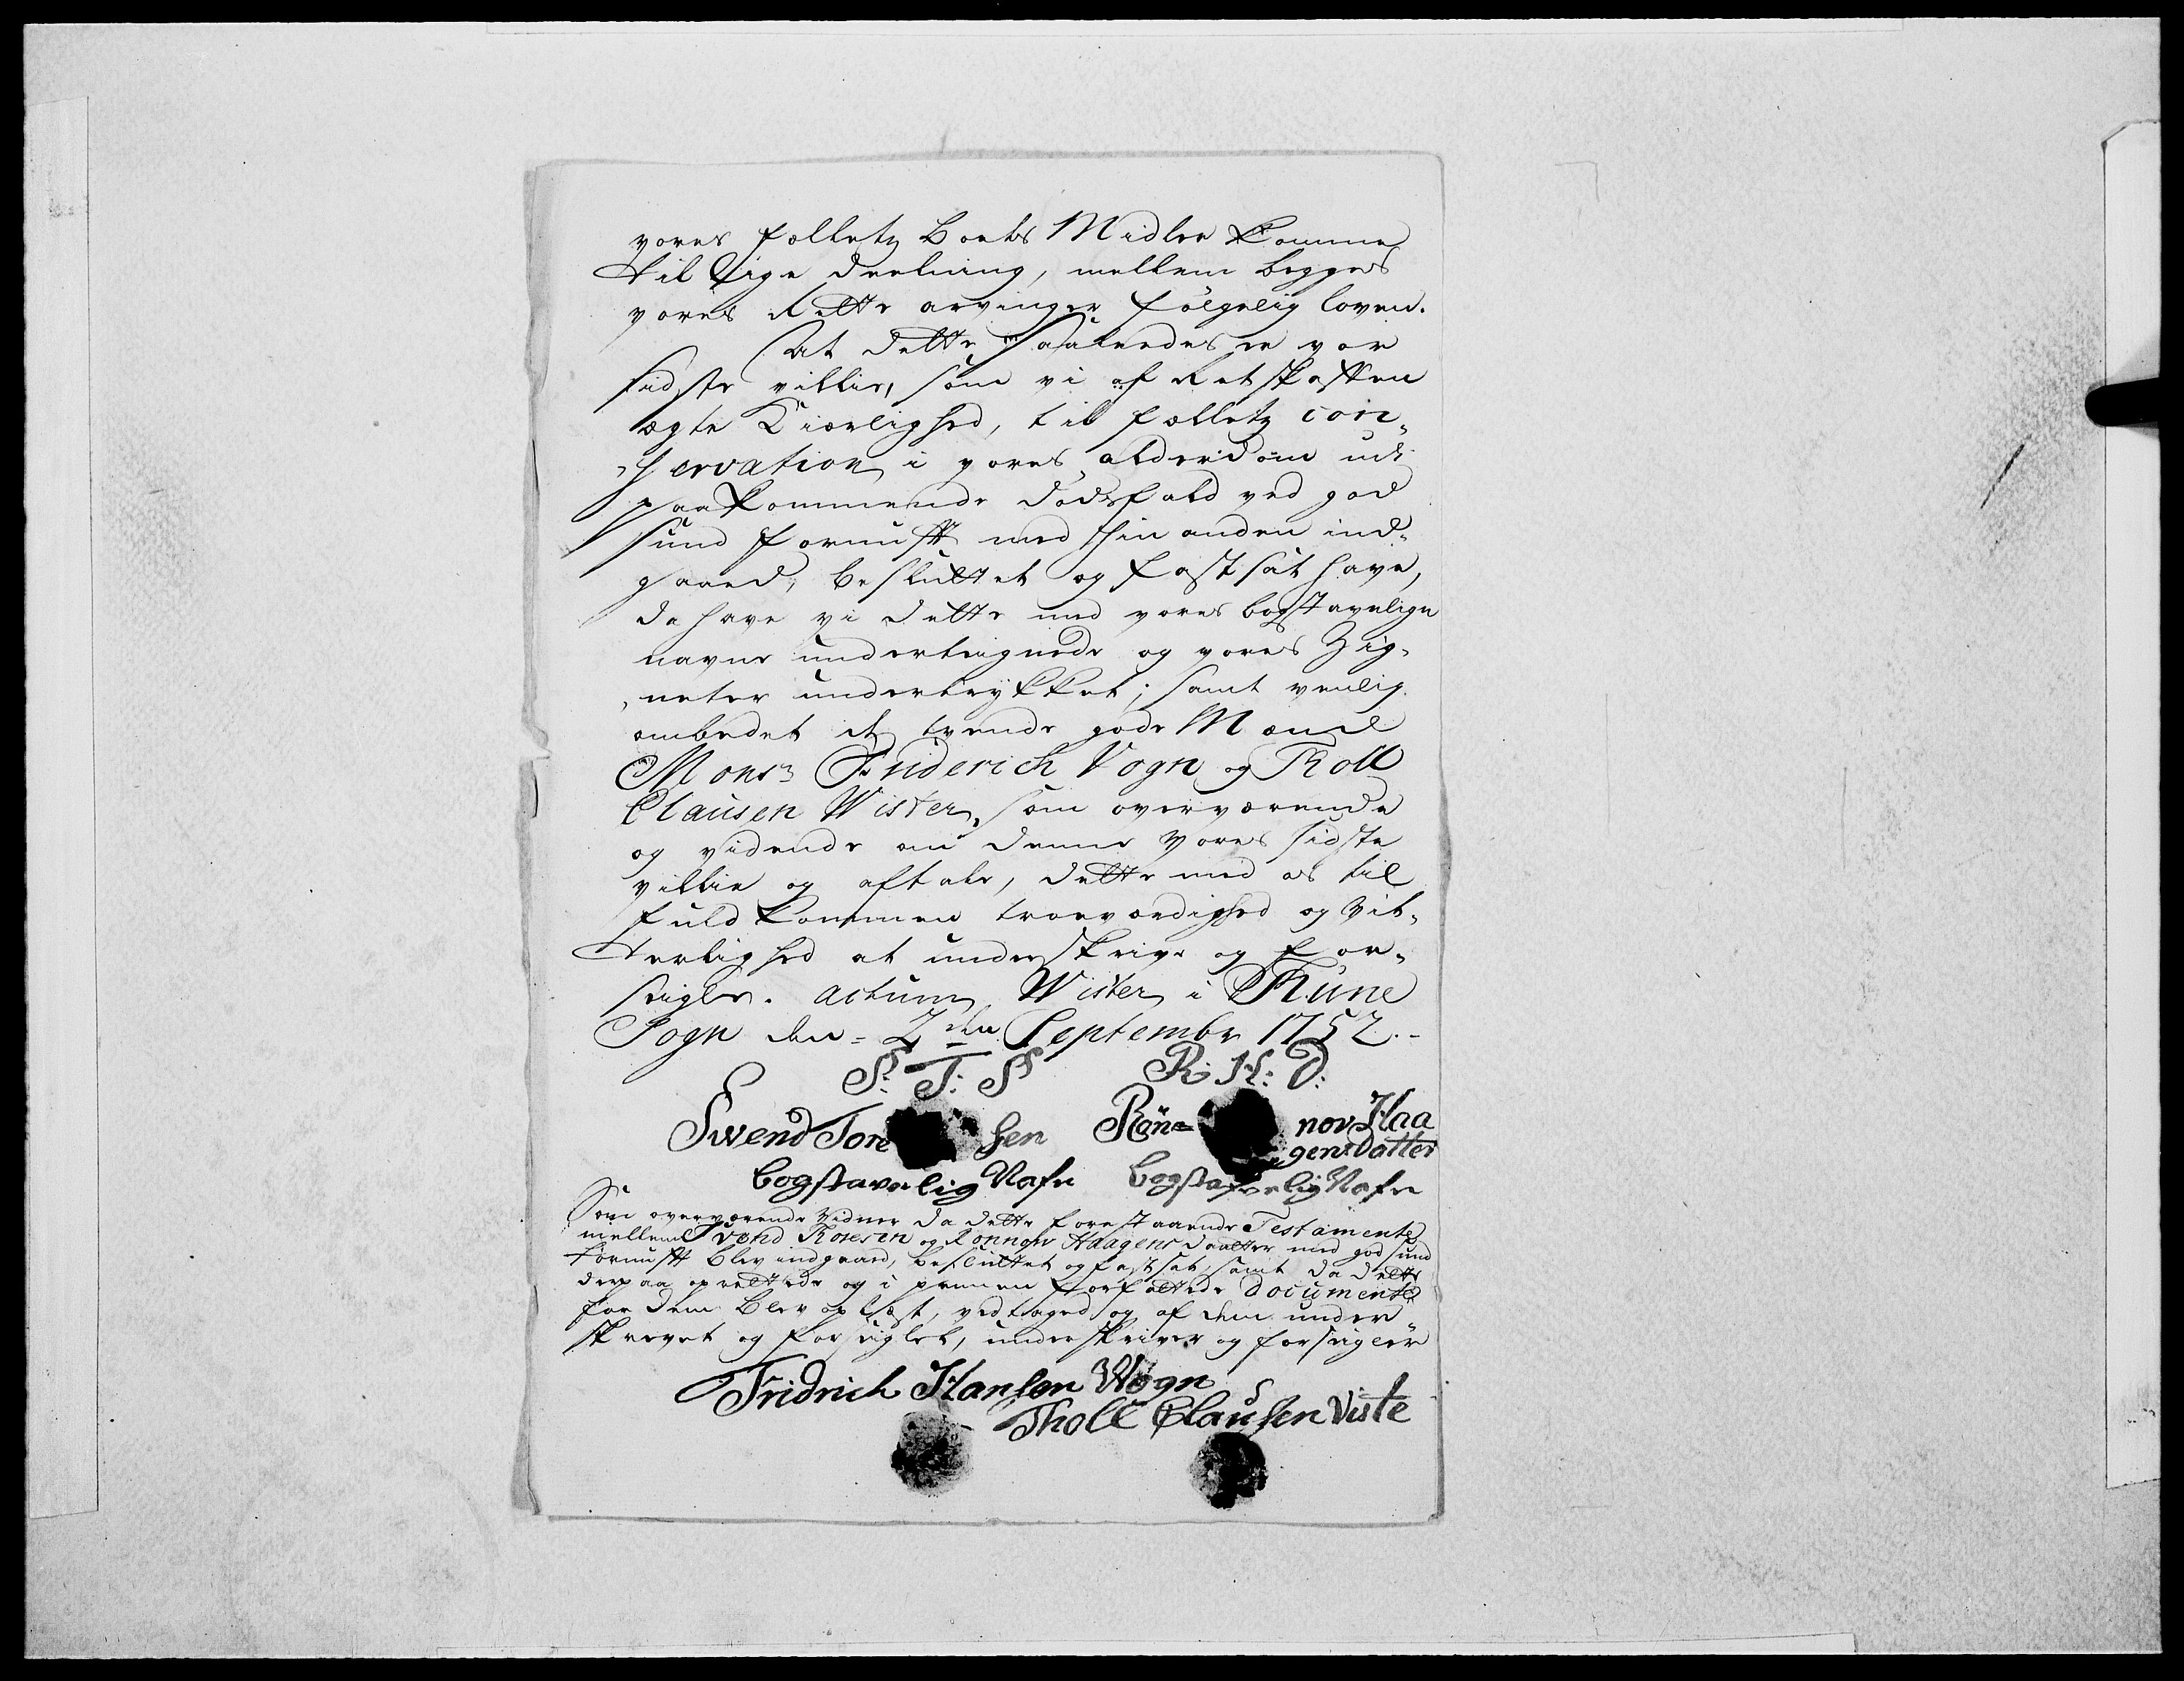 vores følletz Boets Midler komme
til lige deelning, mellem begges
vores Rette arvinger følgelig loven.
At dette saaledes er vor
sidste villie, som vi af Retskaffen
ægte Kiærlighed, til følletz con„
„servation i vores alderdom udi
paakommende dødsfald ved god
sund fornufft med hin anden ind„
gaaed, besluttet og fastsat have,
da have vi dette med vores bogstavelige
navne undertegnede og vores Zig„
„neter undertrykket; samt venlig
ombedet de tvende gode Mænd
Monsr Friderich Vogn og Troll
Clausen Wister, som overværende
og vidende om denne vores sidste
villie og aftale, dette med os til
fuldkommen troeværdighed og Vit„
terlighed at underskrive og for„
seigle. actum Wister i Thune
Sogn den = 2den Septembr 1752.-
S: T: S R: H: D:
Swend Tore sen Rön= nov Haa
gens Datter
bogstavelig Nafn bogstavelig Nafn
Som overværende Vidner da dette forestaaende Testamente
mellem Svend Toresen og Rönnow Haagens daatter med god sund
fornufft blev indgaaed, besluttet og fastsat, samt da dette
derpaa oprettede og i pennen forfattede Documente
for dem blev oplæst, vedtaged og af dem under„
skrevet og forseiglet, underskriver og forseigler
Fridrich Hansen Wogn
Tholl Clausen Viste